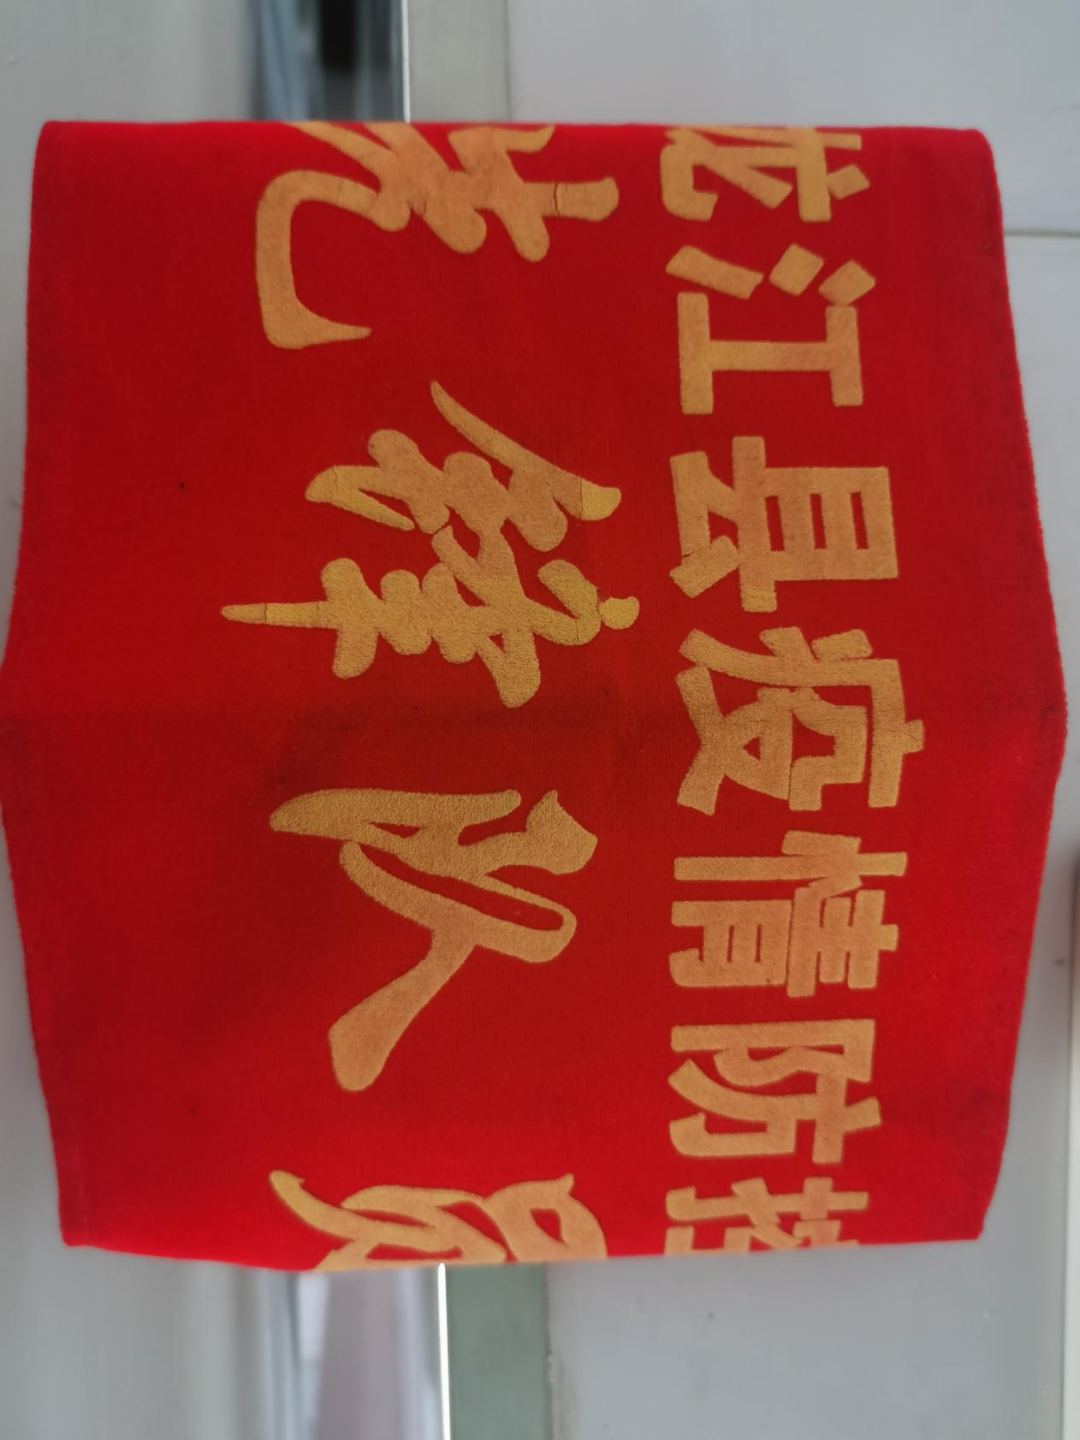 龙江县疫情防控
先锋队员